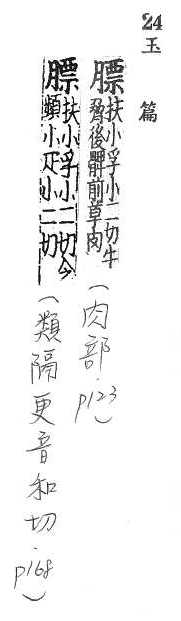 24 玉篇
膘 扶小孚小二切牛
脅後髀前革肉
(肉部.p123)
膘 扶小孚小二切今
頻小疋小二切
(類隔更音和切.p168)